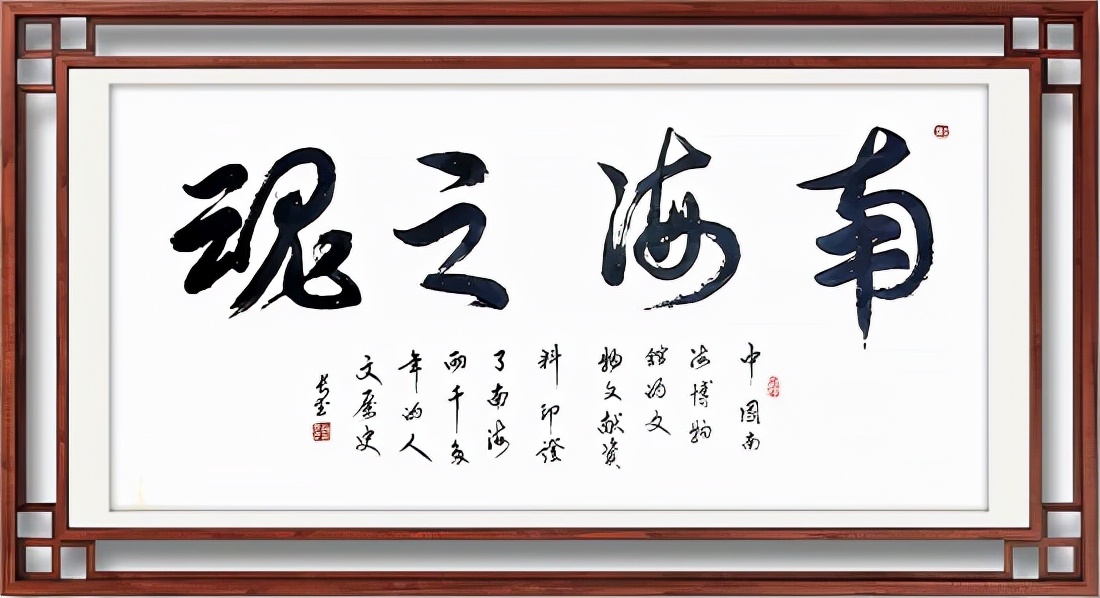 南海之魂
中國南
海博物
館的文
物文献资
料印證
了南海
两千多
年的人
文歷史